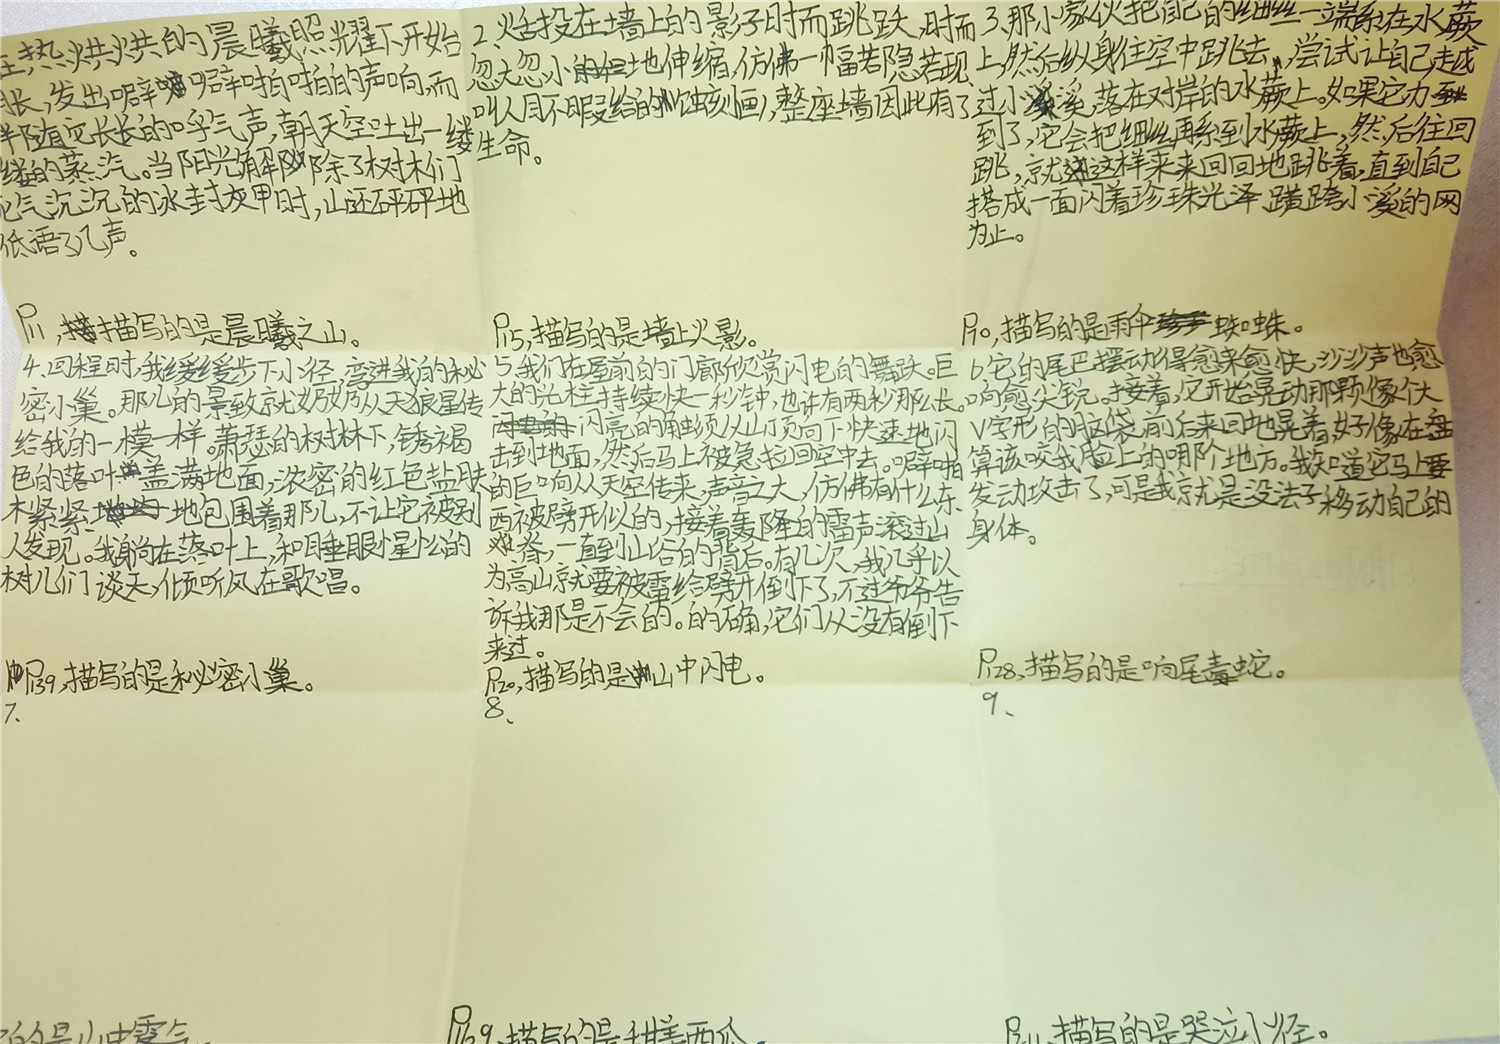 热烘烘的晨曦照耀下开始
胀，发出噼噼啪啪的声响，而
伴随它长长的呼气声，朝天空吐出一缕
缕的蒸汽。当阳光解除了树木们
死气沉沉的冰封灰甲时，山还砰砰地
低语了几声。
P11，描写的是晨曦之山。
2、火舌投在墙上的影子时而跳跃，时而
忽大忽小地伸缩，仿佛一幅若隐若现、
叫人目不暇给的蚀刻画，整座墙因此有了
生命。
P15，描写的是墙上火影。
3、那小家伙把自己的细丝一端系在水蕨
上，然后纵身往空中跳去，尝试让自己越
过小溪，落在对岸的水蕨上。如果它办
到了，它会把细丝再系到水蕨上，然后往回
跳，就这样来来回回地跳着，直到自己
搭成一面闪着珍珠光泽、横跨小溪的网
为止。
描写的是雨伞蜘蛛。
4、回程时，我缓缓步下小径，弯进我的秘
密小巢。那儿的景致就如奶奶从天狼星传
给我的一模一样。萧瑟的树林下，锈褐
色的落叶盖满地面，浓密的红色盐肤
木紧紧地包围着那儿，不让它被别
人发现。我躺在落叶上，和睡眼惺忪的
树儿们谈天，倾听风在歌唱。
P139，描写的是秘密小巢。
5、我们在屋前的门廊欣赏闪电的舞跃。巨
大的光柱持续快一秒钟，也许有两秒那么长。
闪亮的触须从山顶向下快速地闪
击到地面，然后马上被急拉回空中去。噼啪
的巨响从天空传来，声音之大，仿佛有什么东
西被劈开似的，接着轰隆的雷声滚过山
脊，一直到山谷的背后。有几次，我几乎以
为高山就要被雷给劈开倒下了，不过爷爷告
诉我那是不会的。的确，它们从没有倒下
来过。
P120，描写的是山中闪电。
6、它的尾巴摆动得愈来愈快，沙沙声也愈
响愈尖锐。接着，它开始晃动那颗像个大
V字形的脑袋，前后来回地晃着，好像在盘
算该咬我脸上的哪个地方。我知道它马上要
发动攻击了，可是我就是没法子移动自己的
身体。
P128，描写的是响尾毒蛇。
7、
8、
9、
的是山中雾气。
描写的是甜美西瓜。
描写的是哭泣小径。